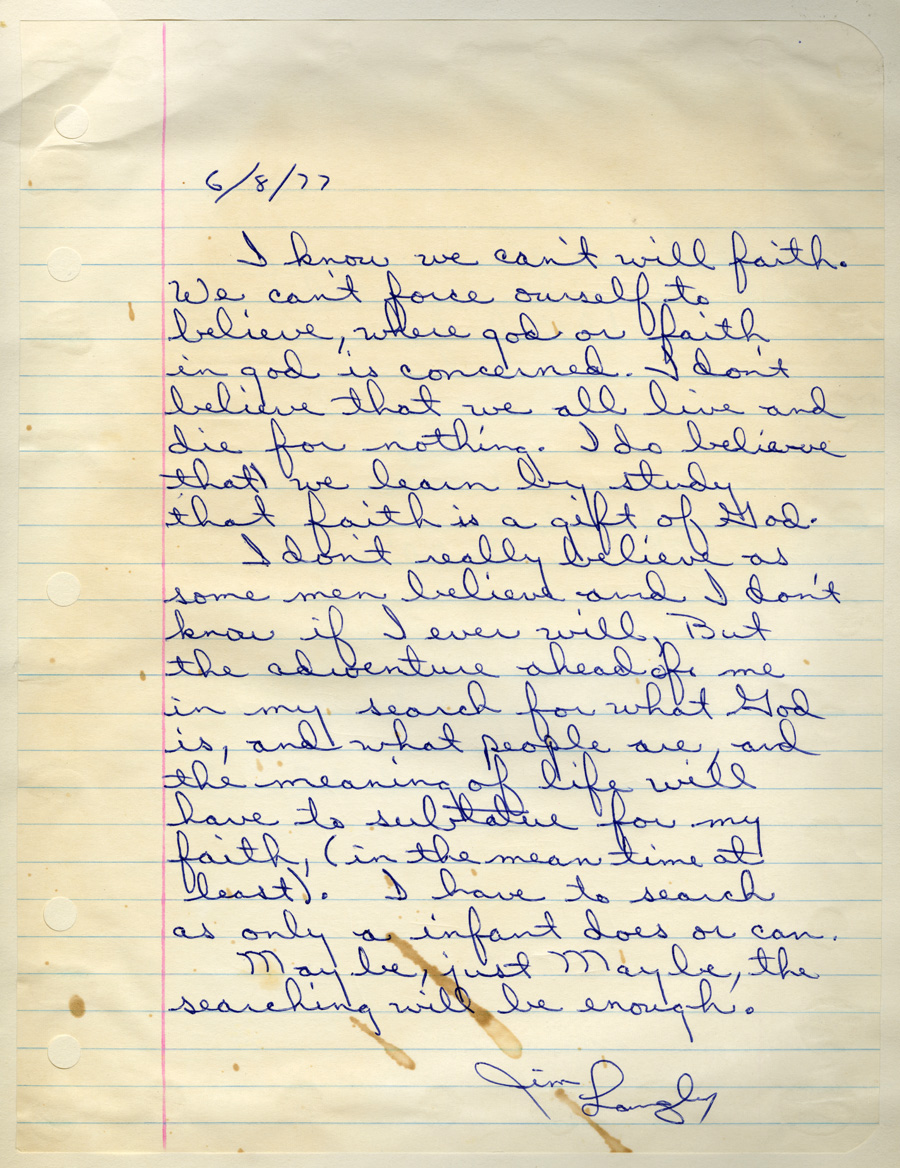 6/8/77
I know we can't will faith.
We can't force ourself to
believe, where god or faith
in god is concerned. I don't
believe that we all live and
die for nothing. I do believe
that) we learn by study
that faith is a gift of God.
I don't really believe as
some men believe and I don't
know if I ever will, But
the adventure ahead of me
in my search for what God
is, and what people are, and
the meaning of life will
have to for my
faith, (in the mean time at
least). I have to search
as only a infant does or can.
May be, just May be, the
searching will be enough.
Jim Langly